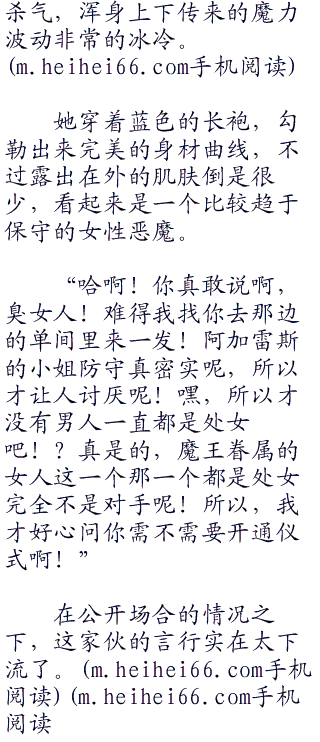 杀气，浑身上下传来的魔力
波动非常的冰冷。
(m.heihei66.com手机阅读)
她穿着蓝色的长袍，勾
勒出来完美的身材曲线，不
过露出在外的肌肤倒是很
少，看起来是一个比较趋于
保守的女性恶魔。
“哈啊！你真敢说啊，
臭女人！难得我找你去那边
的单间里来一发！阿加雷斯
的小姐防守真密实呢，所以
才让人讨厌呢！嘿，所以才
没有男人一直都是处女
吧！？真是的，魔王眷属的
女人这一个那一个都是处女
完全不是对手呢！所以，我
才好心问你需不需要开通仪
式啊！”
在公开场合的情况之
下，这家伙的言行实在太下
流了。(m.heihei66.com手机
阅读)(m.heihei66.com手机
阅读